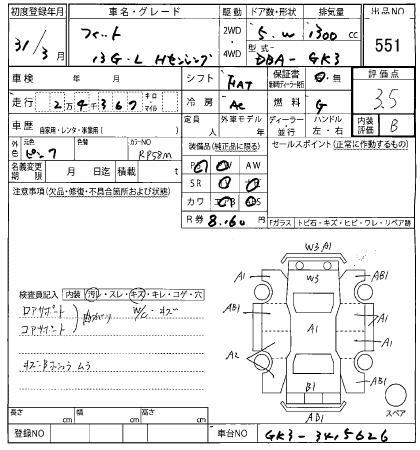 初度登録年月 車名・グレード 駆動 ドア数・形状 排気量 出品NO
31/3月 フィット 2WD・4WD 5.W 1300cc 551
13G・L Hセンシング 型式 DBA-GK3
車検 年 月 シフト FAT 保証書 有・無 評価点
走行 2万4千367 キロ・マイル 冷房 AC 燃料 G 3.5
車歴 自家用・レンタ・事業用( ) 定員 人 外車モデル 年 ディーラー・並行 ハンドル 左・右 内装評価 B
外色 元色 ピンク 色替 カラーNO RP58M 装備品(純正品に限る) セールスポイント(正常に作動するもの)
名義変更期限 月 日迄 積載 t PS PW AW
SR
注意事項(欠品・修復・不具合箇所および状態) カワ
R券 8,160円
Fガラス トビ石・キズ・ヒビ・ワレ・リペア跡
検査員記入 内装 汚レ・スレ・キズ・キレ・コゲ・穴
W3 A1
A1 W3 AB1
AB1 A1 A1
A1
A2
B1 AB1
AB1
スペア
長さ cm 幅 cm 高さ cm
登録NO 車台NO GK3-3415626